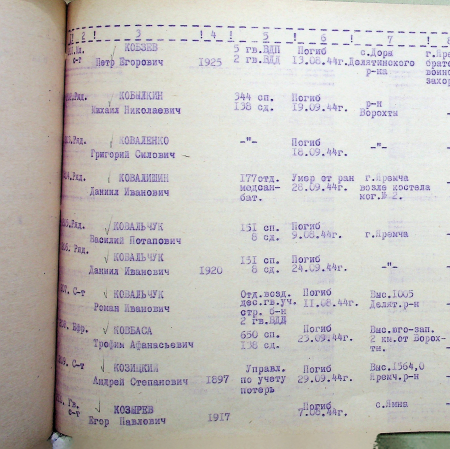 2 ! 3 ! 4 ! 5 ! 6 ! 7 !
КОБЗЕВ 5 гв.ВДП Погиб с.Дора г.Яре
с-т Петр Егорович 1925 2 гв.ВДД 13.08.44г. Долятинского братс
р-на воинс
захор
Ряд. КОБЫЛКИН 344 сп. Погиб р-н
Михаил Николаевич 138 сд. 19.09.44г. Ворохты
Ряд. КОВАЛЕНКО -"- Погиб
Григорий Силович 18.09.44г. -"-
Ряд. КОВАЛИШИН 177отд. Умер от ран г.Яремча
Даниил Иванович медсан- 28.09.44г. возле костела
бат. мог.№2.
Ряд. КОВАЛЬЧУК 151 сп. Погиб
Василий Потапович 8 сд. 9.08.44г. г.Яремча
Ряд.
КОВАЛЬЧУК 151 сп. Погиб
Даниил Иванович 1920 8 сд. 24.09.44г. -"-
С-т КОВАЛЬЧУК Отд.возд. Погиб Выс.1005
Роман Иванович дес.гв.уч. 11.08.44г. Делят.р-н
стр. б-н
2 гв.ВДД
Ефр. КОВБАСА 650 сп. Погиб Выс.юго-зап.
Трофим Афанасьевич 138 сд. 23.09.44г. 2 км.от Ворох-
ти.
С-т КОЗИЦКИЙ Управл. Погиб Выс.1364,0
Андрей Степанович 1897 по учету 29.09.44г. Яремч.р-н
потерь
Гв. КОЗЫРЕВ Погиб с.Ямна
с-т Егор Павлович 1917 7.08.44г.